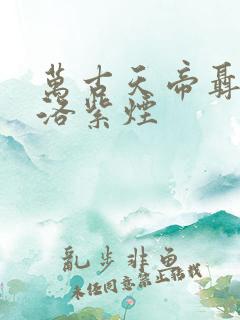 萬古天帝聶
洛紫煙
亂步非魚
未經同意禁止轉載